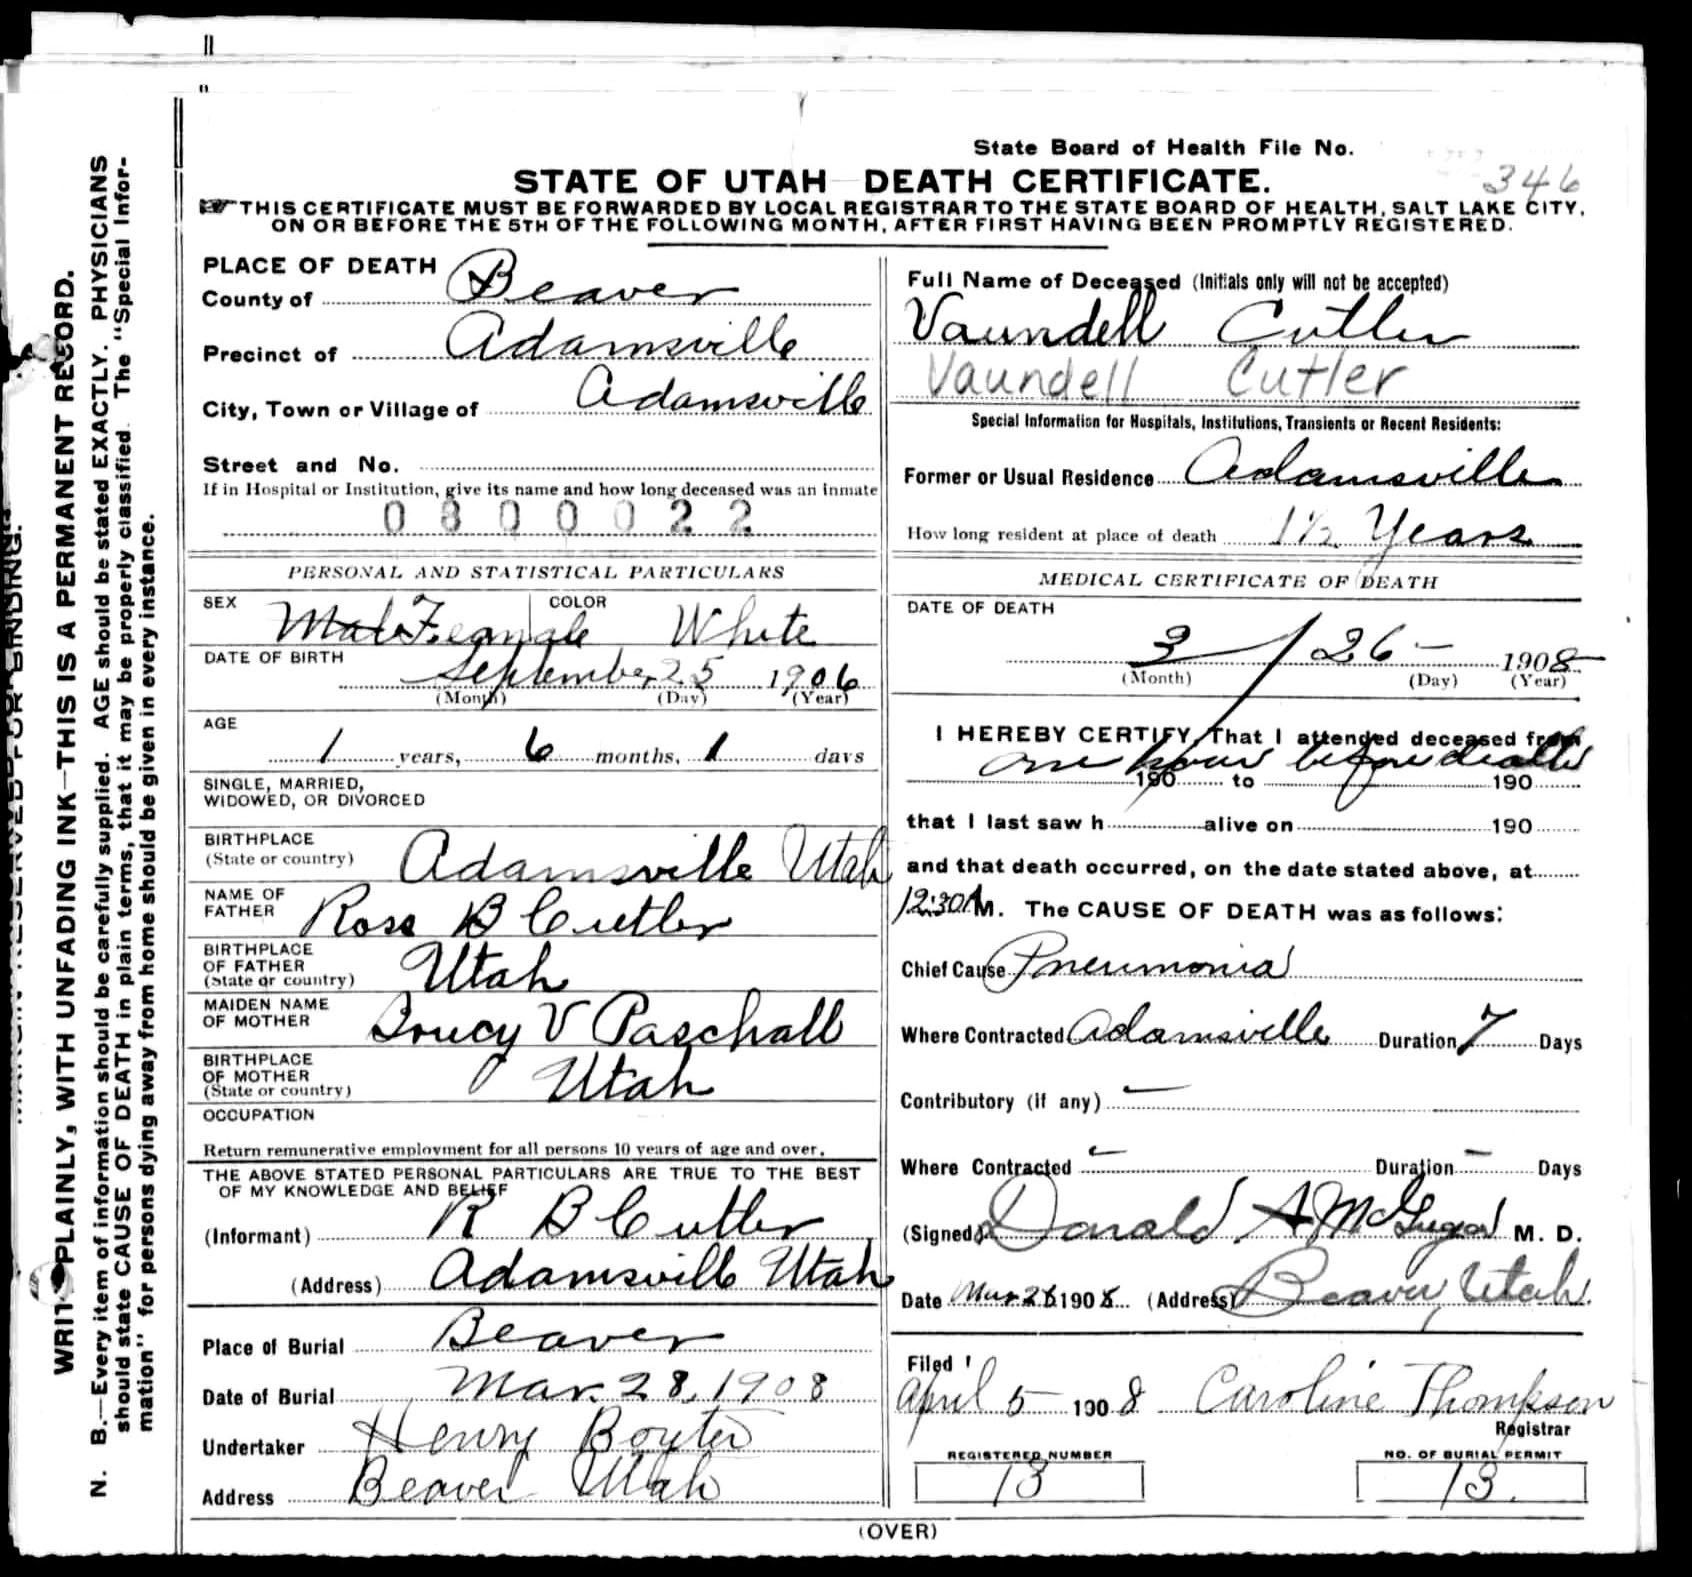 State Board of Health File No.
346
STATE OF UTAH—DEATH CERTIFICATE.
THIS CERTIFICATE MUST BE FORWARDED BY LOCAL REGISTRAR TO THE STATE BOARD OF HEALTH, SALT LAKE CITY,
ON OR BEFORE THE 5TH OF THE FOLLOWING MONTH, AFTER FIRST HAVING BEEN PROMPTLY REGISTERED.
PLACE OF DEATH
County of Beaver
Precinct of Adamsville
City, Town or Village of Adamsville
Street and No.
If in Hospital or Institution, give its name and how long deceased was an inmate
0800022
PERSONAL AND STATISTICAL PARTICULARS
SEX Male Feamale COLOR White
DATE OF BIRTH
September 25 1906
(Month) (Day) (Year)
AGE
1 years, 6 months, 1 days
SINGLE, MARRIED,
WIDOWED, OR DIVORCED
BIRTHPLACE
(State or country) Adamsville Utah
NAME OF
FATHER Ross B Cutler
BIRTHPLACE
OF FATHER
(State or country) Utah
MAIDEN NAME
OF MOTHER V Paschall
BIRTHPLACE
OF MOTHER
(State or country) Utah
OCCUPATION
Return remunerative employment for all persons 10 years of age and over.
THE ABOVE STATED PERSONAL PARTICULARS ARE TRUE TO THE BEST
OF MY KNOWLEDGE AND BELIEF
(Informant) R B Cutler
(Address) Adamsville Utah
Place of Burial Beaver
Date of Burial Mar. 28, 1908
Undertaker Henry Boyter
Address Beaver Utah
Full Name of Deceased (Initials only will not be accepted)
Vaundell Cutler
Vaundell Cutler
Special Information for Hospitals, Institutions, Transients or Recent Residents:
Former or Usual Residence Adamsville
How long resident at place of death 1½ Years
MEDICAL CERTIFICATE OF DEATH
DATE OF DEATH
3 / 26 — 1908
(Month) (Day) (Year)
I HEREBY CERTIFY, That I attended deceased from
one hour before death
190 to 190
that I last saw h alive on 190
and that death occurred, on the date stated above, at
12:30 A M. The CAUSE OF DEATH was as follows:
Chief Cause Pneumonia
Where Contracted Adamsville Duration 7 Days
Contributory (if any) —
Where Contracted — Duration — Days
(Signed) Donald A McGregor M. D.
Date Mar 26 1908 (Address) Beaver, Utah
Filed
April 5 1908 Caroline Thompson
Registrar
REGISTERED NUMBER
13
NO. OF BURIAL PERMIT
13.
(OVER)
MARGIN RESERVED FOR BINDING.
WRITE PLAINLY, WITH UNFADING INK—THIS IS A PERMANENT RECORD.
N. B.—Every item of information should be carefully supplied. AGE should be stated EXACTLY. PHYSICIANS
should state CAUSE OF DEATH in plain terms, that it may be properly classified. The "Special Infor-
mation" for persons dying away from home should be given in every instance.